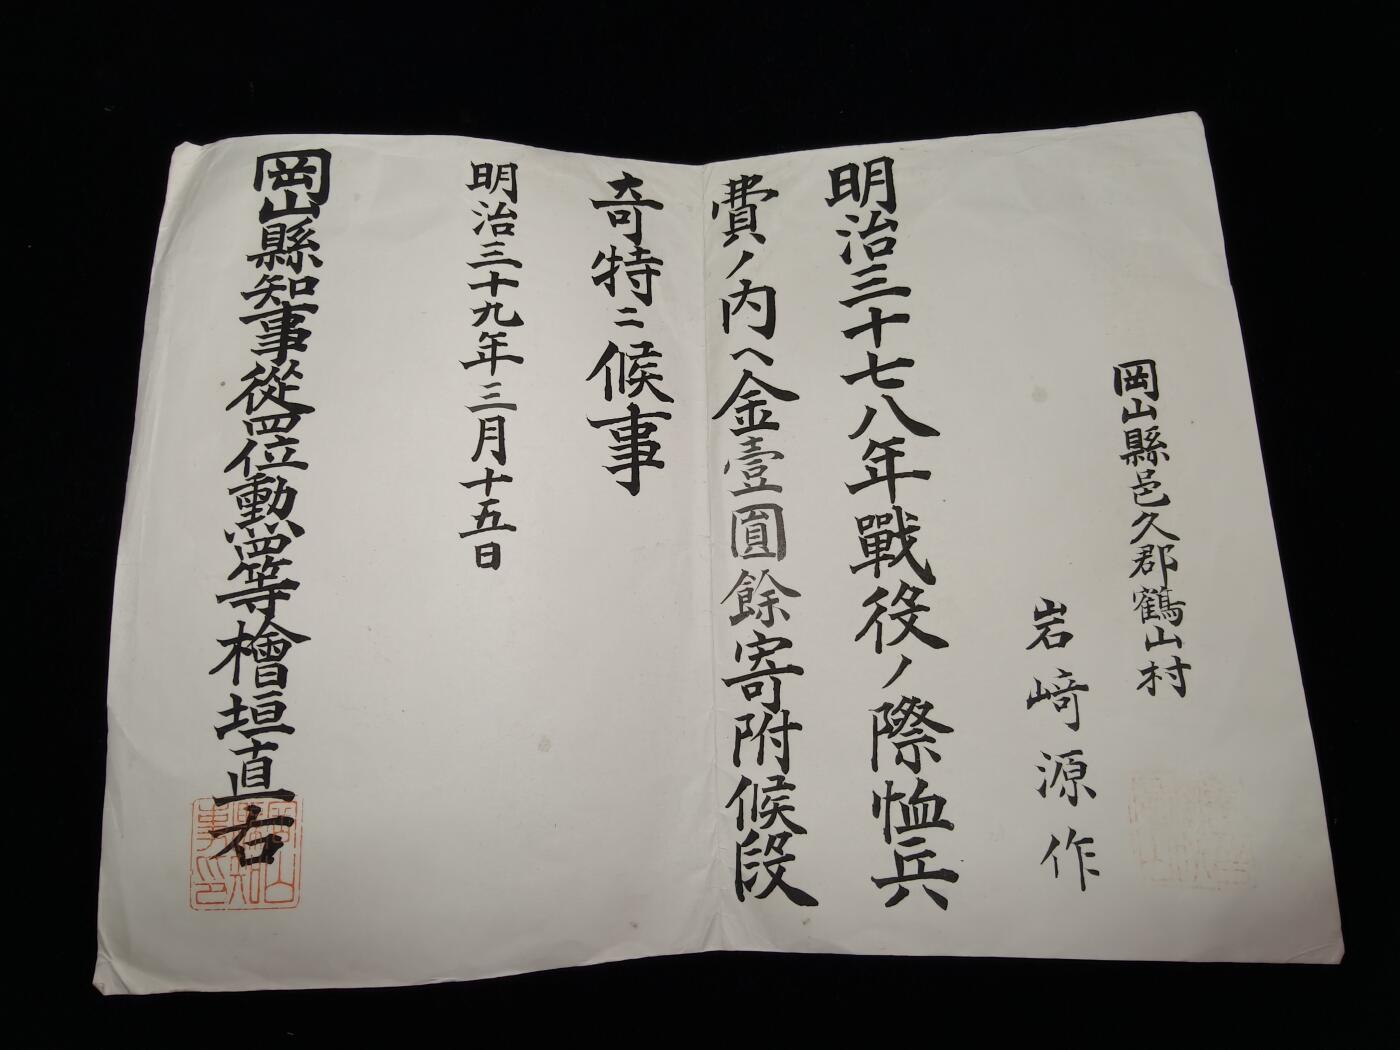 岡山縣邑久郡鶴山村
岩﨑源作
明治三十七八年戰役ノ際恤兵
費ノ内ヘ金壹圓餘寄附候段
奇特ニ候事
明治三十九年三月十五日
岡山縣知事從四位勳四等檜垣直右
岡山縣知事印